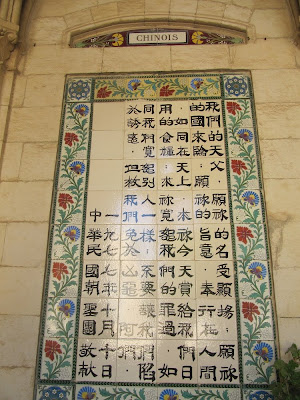 CHINOIS
我們的天父 願祢的名受顯揚 願祢
的國來臨 願祢的旨意 奉行在人間
如同在天上 求祢今天賞給我們日
用的食糧 求祢寬免我們的罪過 如
同我們寬免別人一樣 不要讓我們陷
於誘惑 但救我們免於凶惡 阿們
一九七年十月十日
中華民國朝聖團敬献